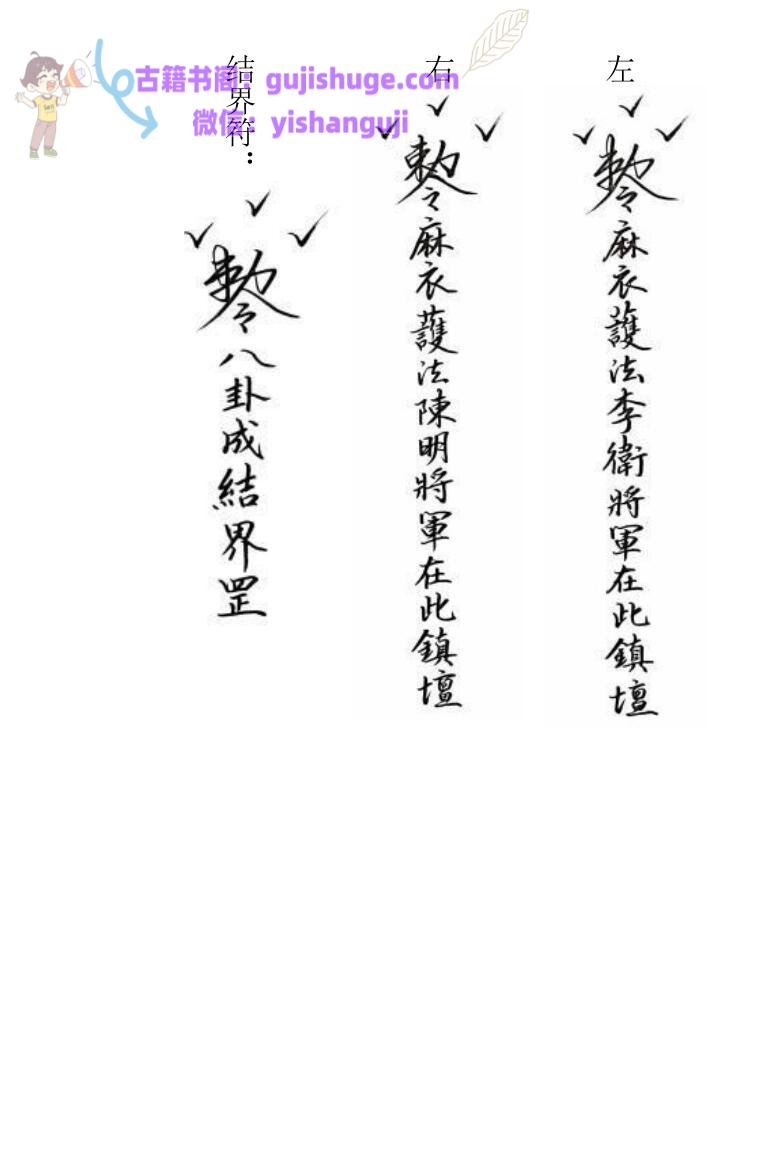 左
敕令麻衣護法李衛將軍在此鎮壇
右
敕令麻衣護法陳明將軍在此鎮壇
结界符：
敕令八卦成結界罡
古籍书阁：gujishuge.com
微信：yishanguji